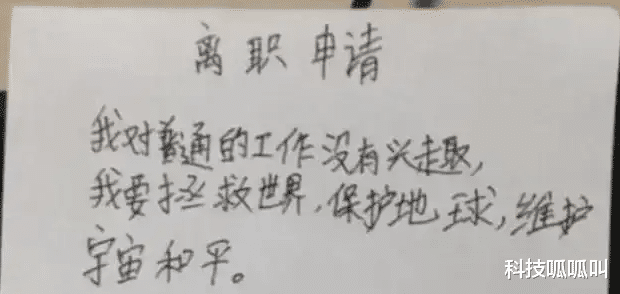 离职申请
我对普通的工作没有兴趣，
我要拯救世界，保护地球，维护
宇宙和平。
科技呱呱叫